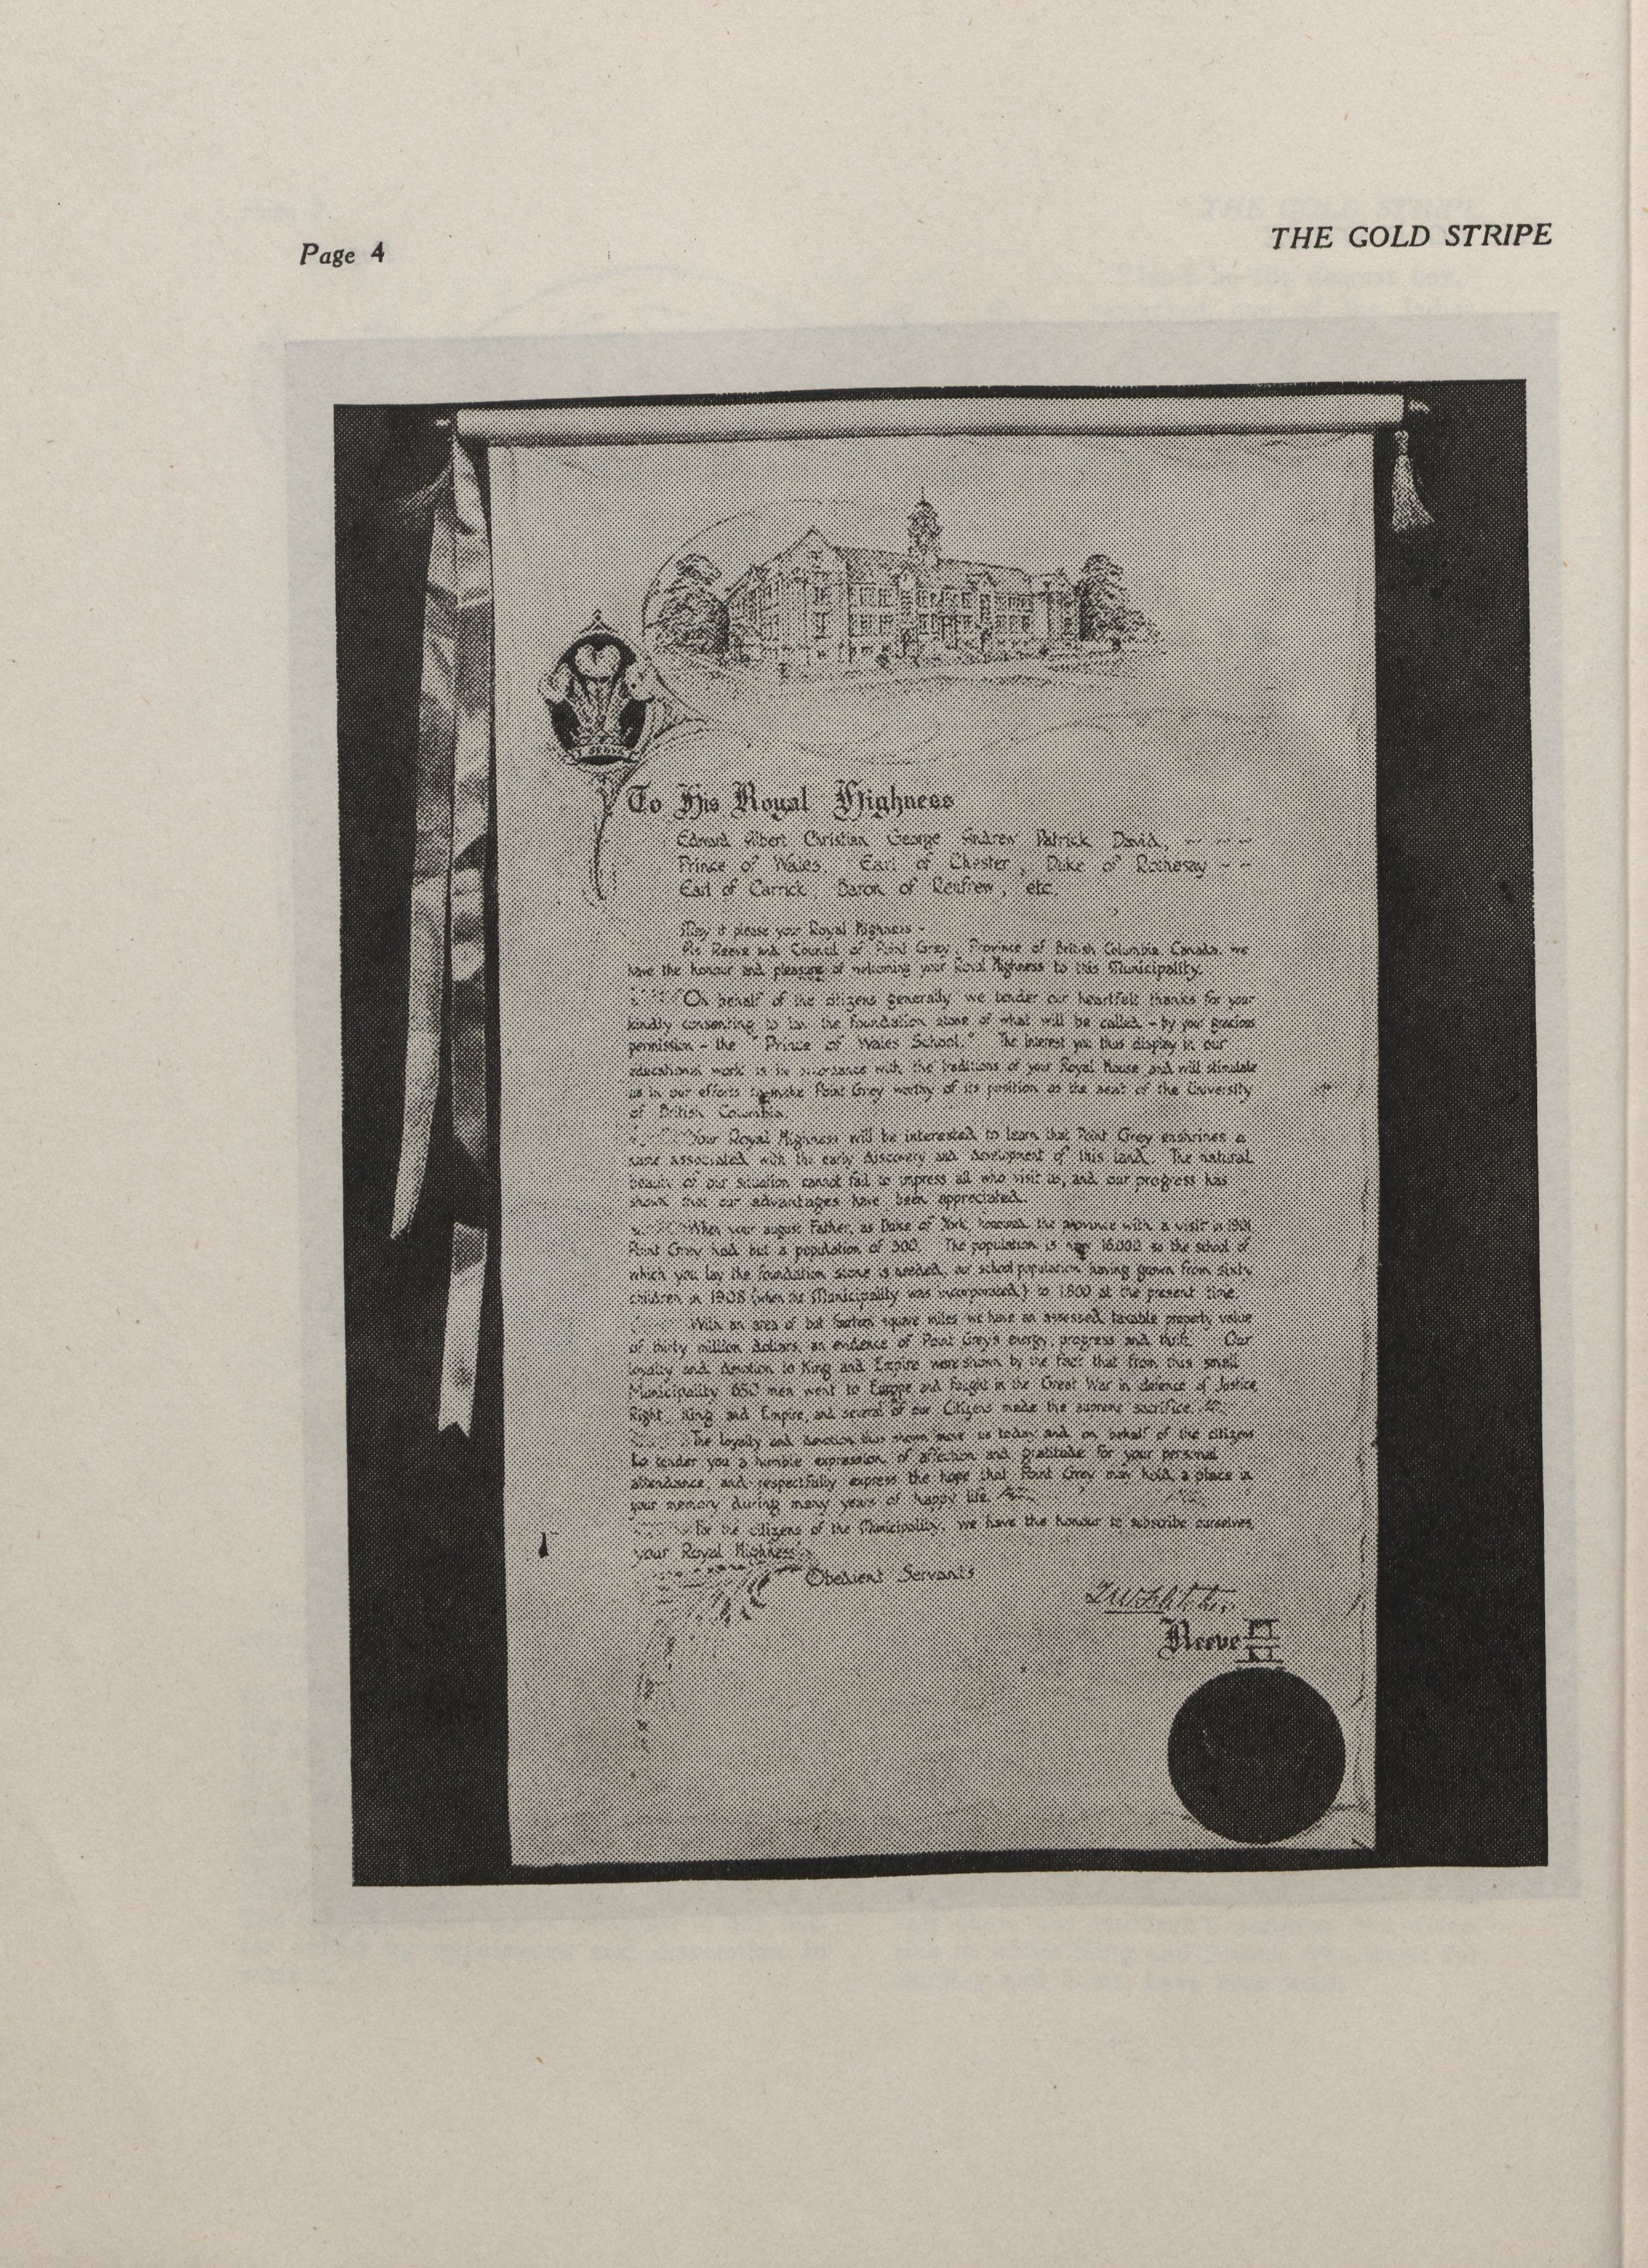 Page 4
THE GOLD STRIPE
To His Royal Highness
Edward Albert Christian George Andrew Patrick David,
Prince of Wales, Earl of Chester, Duke of Rothesay
Earl of Carrick, Baron of Renfrew, etc.
May it please your Royal Highness -
As Reeve and Council of Point Grey, Province of British Columbia Canada, we
have the honour and pleasure of welcoming your Royal Highness to this Municipality.
On behalf of the citizens generally we tender our heartfelt thanks for your
kindly consenting to lay the foundation stone of what will be called - by your gracious
permission - the "Prince of Wales School." The interest you thus display in our
educational work is in accordance with the traditions of your Royal House and will stimulate
us in our efforts to make Point Grey worthy of its position as the seat of the University
of British Columbia.
Your Royal Highness will be interested to learn that Point Grey enshrines a
name associated with the early discovery and development of this land. The natural
beauty of our situation cannot fail to impress all who visit us, and our progress has
shown that our advantages have been appreciated.
When your august Father, as Duke of York, honoured the province with a visit in 1901
Point Grey had but a population of 300. The population is now 16000 so the school of
which you lay the foundation stone is needed, our school population having grown from sixty
children in 1908 (when the Municipality was incorporated) to 1800 at the present time.
With an area of but fourteen square miles we have an assessed taxable property value
of thirty million dollars, an evidence of Point Grey's energy, progress and thrift. Our
loyalty and devotion to King and Empire were shown by the fact that from this small
Municipality 650 men went to Europe and fought in the Great War in defence of Justice,
Right, King and Empire, and several of our Citizens made the supreme sacrifice.
The loyalty and devotion thus shown move us today and on behalf of the citizens
to tender you a humble expression of affection and gratitude for your personal
attendance, and respectfully express the hope that Point Grey may hold a place in
your memory during many years of happy life.
For the citizens of the Municipality, we have the honour to subscribe ourselves,
your Royal Highness'
Obedient Servants
Reeve